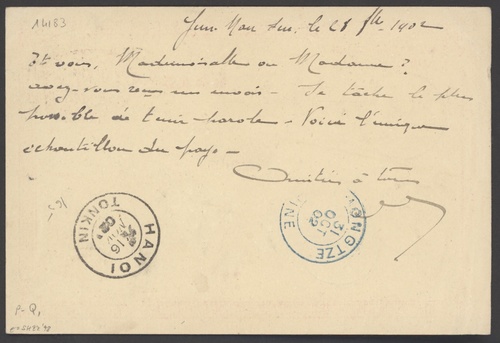 14183
le 28 1902
Et vous, Mademoiselle ou Madame?
avez-vous reçu un envoi - Je tâche le plus
possible de tenir parole - Voici l'unique
échantillon du pays -
Amitiés à tous
HANOI
TONKIN
16
02
MONGTZE
CHINE
31
OCT
02